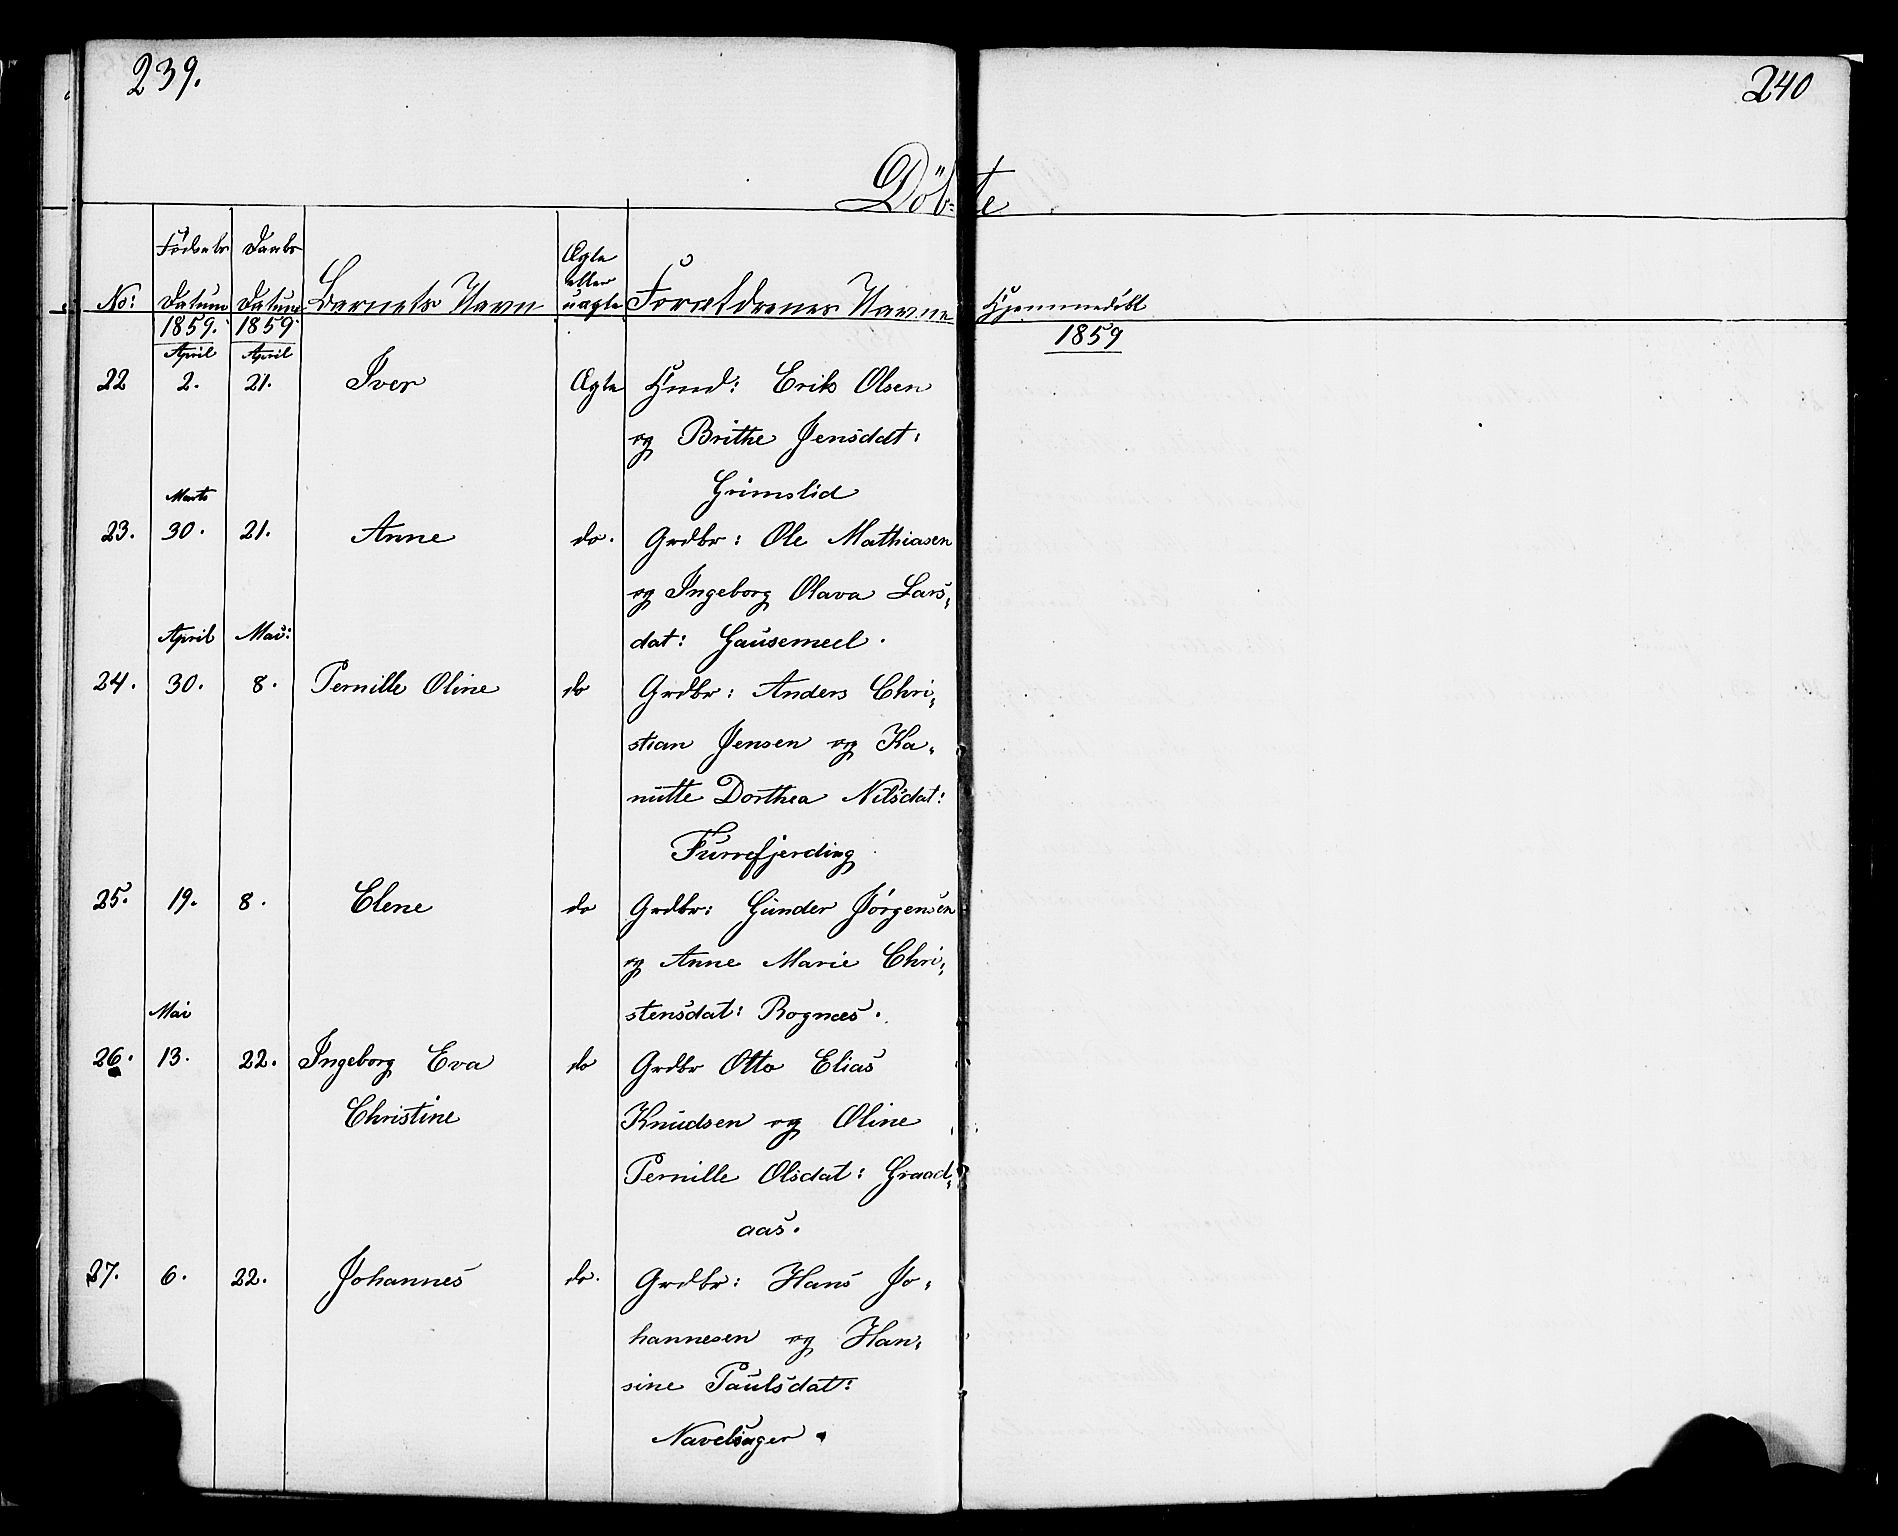 239.
240
Döb-te
No:
Fødsels Datum
Daabs Datum
Barnets Navn
Ægte eller uægte
Forældrenes Navne
Hjemmedöbt
1859. 1859. 1859
April April
22 2. 21. Iver Ægte Hmd: Erik Olsen
og Brithe Jensdat:
Grimslid
Marts
23. 30. 21. Anne do. Grdbr: Ole Mathiasen
og Ingeborg Olava Lars-
dat: Gausemeel.
April Mai:
24. 30. 8. Pernille Oline do Grdbr: Anders Chri-
stian Jensen og Ka-
nutte Dorthea Nilsdat:
Furrefjerding
25. 19. 8. Elene do Grdbr: Gunder Jørgensen
og Anne Marie Chri-
stensdat: Rognæs.
Mai
26. 13. 22. Ingeborg Eva do Grdbr Otto Elias
Christine Knudsen og Oline
Pernille Olsdat: Graad-
aas.
27. 6. 22. Johannes do. Grdbr: Hans Jo-
hannesen og Han-
sine Paulsdat:
Navelsager.